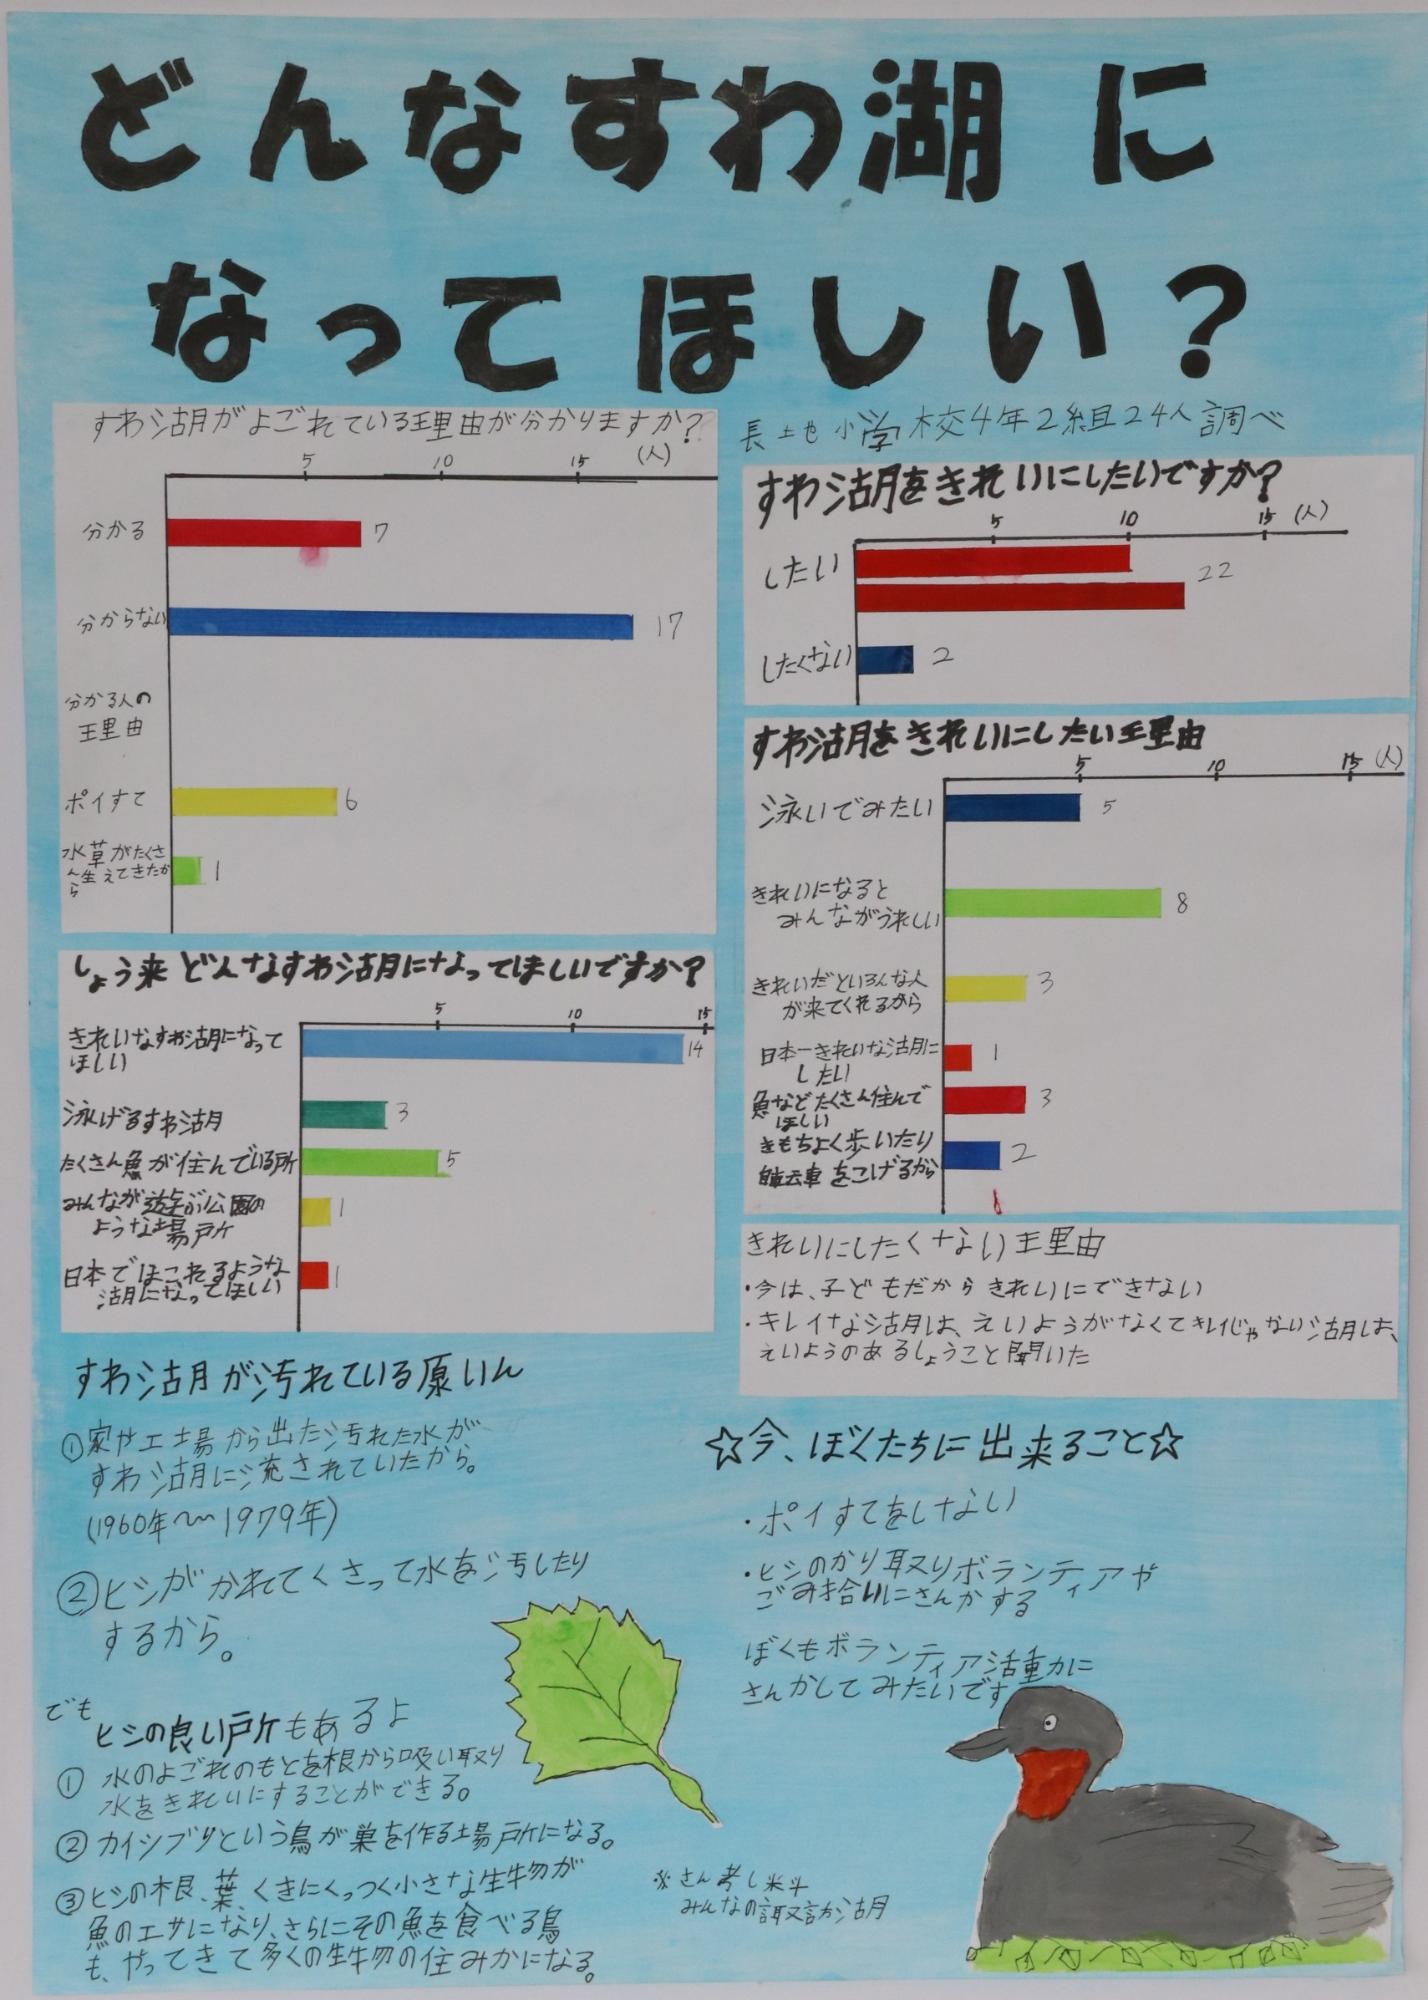 どんなすわ湖に
なってほしい?
すわ湖がよごれている理由が分かりますか?
5 10 15 (人)
分かる 7
分からない 17
分かる人の
理由
ポイすて 6
水草がたくさ
ん生えてきたか
ら 1
しょう来どんなすわ湖になってほしいですか?
5 10 15
きれいなすわ湖になって
ほしい 14
泳げるすわ湖 3
たくさん魚が住んでいる所 5
みんなが遊ぶ公園の
ような場所 1
日本でほこれるような
湖になってほしい 1
長地小学校4年2組24人調べ
すわ湖をきれいにしたいですか?
5 10 15 (人)
したい 22
したくない 2
すわ湖をきれいにしたい理由
5 10 15 (人)
泳いでみたい 5
きれいになると
みんながうれしい 8
きれいだといろんな人
が来てくれるから 3
日本一きれいな湖に
したい 1
魚などたくさん住んで
ほしい 3
きもちよく歩いたり
自転車をこげるから 2
きれいにしたくない理由
・今は、子どもだからきれいにできない
・キレイな湖は、えいようがなくてキレイじゃない湖は、
えいようのあるしょうこと聞いた
すわ湖が汚れている原いん
①家や工場から出た汚れた水が
すわ湖に流されていたから。
(1960年〜1979年)
②ヒシがかれてくさって水を汚したり
するから。
でも
ヒシの良い所もあるよ
① 水のよごれのもとを根から吸い取り
水をきれいにすることができる。
② カイツブリという鳥が巣を作る場所になる。
③ヒシの根、葉、くきにくっつく小さな生物が
魚のエサになり、さらにその魚を食べる鳥
も、やってきて多くの生物の住みかになる。
☆今、ぼくたちに出来ること☆
・ポイすてをしない
・ヒシのかり取りボランティアや
ごみ拾いにさんかする
ぼくもボランティア活動に
さんかしてみたいです
※さん考し料
みんなの諏訪湖